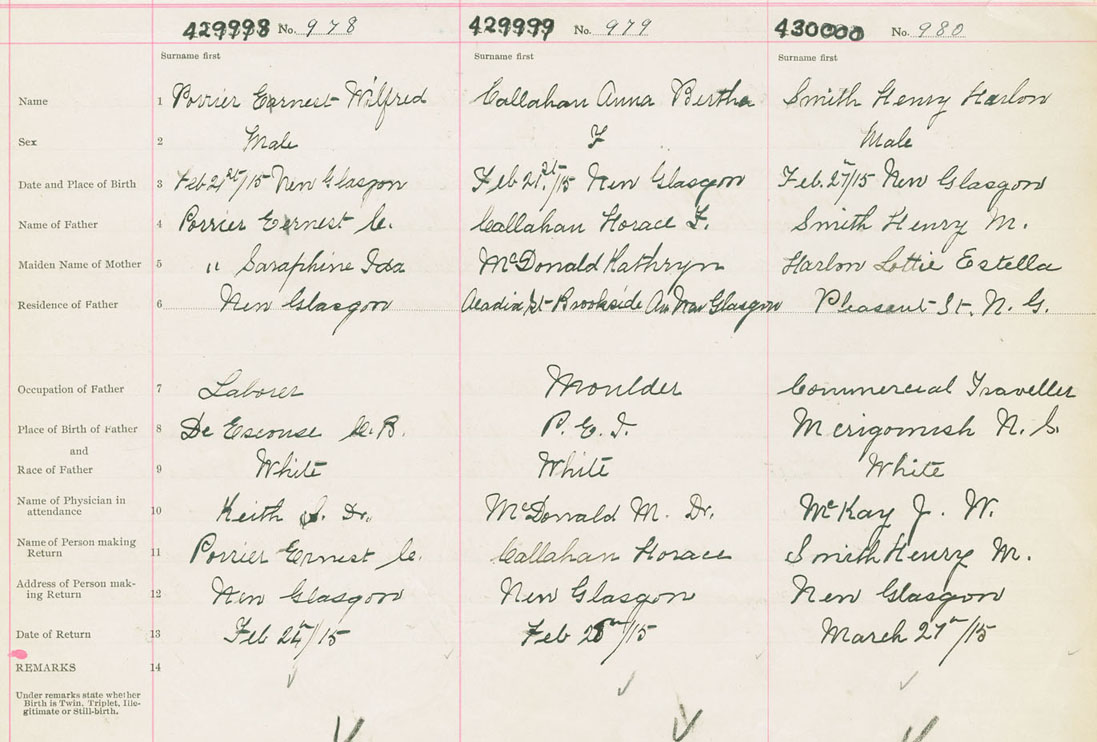 429998 No. 978 429999 No. 979 430000 No. 980
Surname first Surname first Surname first
Name 1 Porrier Earnest Wilfred Callahan Anna Bertha Smith Henry Harlon
Sex 2 Male F Male
Date and Place of Birth 3 Feb 21st/15 New Glasgow Feb 21st/15 New Glasgow Feb. 27/15 New Glasgow
Name of Father 4 Porrier Ernest C. Callahan Horace F. Smith Henry M.
Maiden Name of Mother 5 " Saraphine Ida McDonald Kathryn Harlon Lottie Estella
Residence of Father 6 New Glasgow Acadia St Brookside Av New Glasgow Pleasant St. N. G.
Occupation of Father 7 Laborer Moulder Commercial Traveller
Place of Birth of Father 8 De Escouse C. B. P. E. I. Merigomish N. S.
and
Race of Father 9 White White White
Name of Physician in
attendance 10 Keith Dr. McDonald M. Dr. McKay J. W.
Name of Person making
Return 11 Porrier Ernest C. Callahan Horace Smith Henry M.
Address of Person mak-
ing Return 12 New Glasgow New Glasgow New Glasgow
Date of Return 13 Feb /15 Feb /15 March 27/15
REMARKS 14
Under remarks state whether
Birth is Twin, Triplet, Ille-
gitimate or Still-birth.